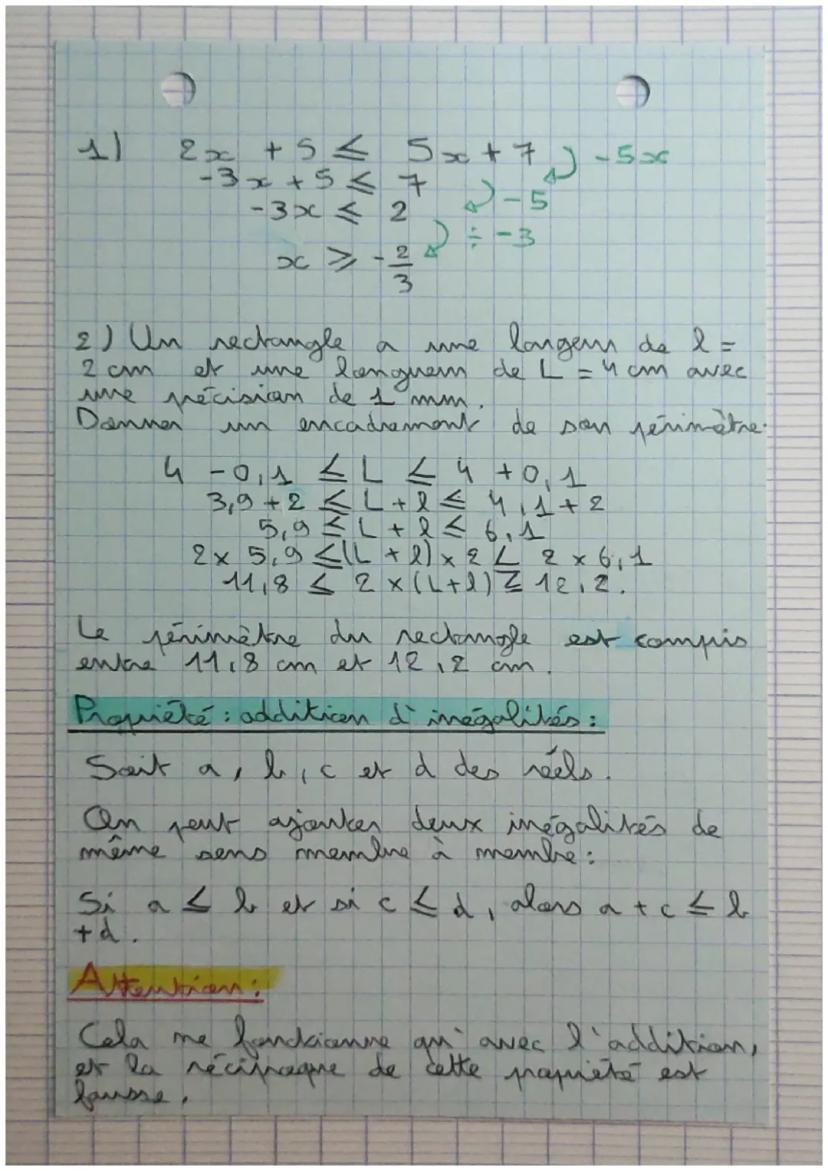 1) 2x + 5 ≤ 5x + 7 -5x
-3x + 5 ≤ 7 -5
-3x ≤ 2 ÷ -3
x ≥ -2/3
2) Un rectangle a une largeur de l =
2 cm et une longueur de L = 4 cm avec
une précision de 1 mm.
Donner un encadrement de son périmètre.
4 - 0,1 ≤ L ≤ 4 + 0,1
3,9 + 2 ≤ L + l ≤ 4,1 + 2
5,9 ≤ L + l ≤ 6,1
2 x 5,9 ≤ (L + l) x 2 ∠ 2 x 6,1
11,8 ≤ 2 x (L + l) ≤ 12,2.
Le périmètre du rectangle est compis
entre 11,8 cm et 12,2 cm.
Propriété : addition d'inégalités :
Soit a, b, c et d des réels.
On peut ajouter deux inégalités de
même sens membre à membre :
Si a ≤ b et si c ≤ d, alors a + c ≤ b
+ d.
Attention :
Cela ne fonctionne qu'avec l'addition,
et la réciproque de cette propriété est
fausse.